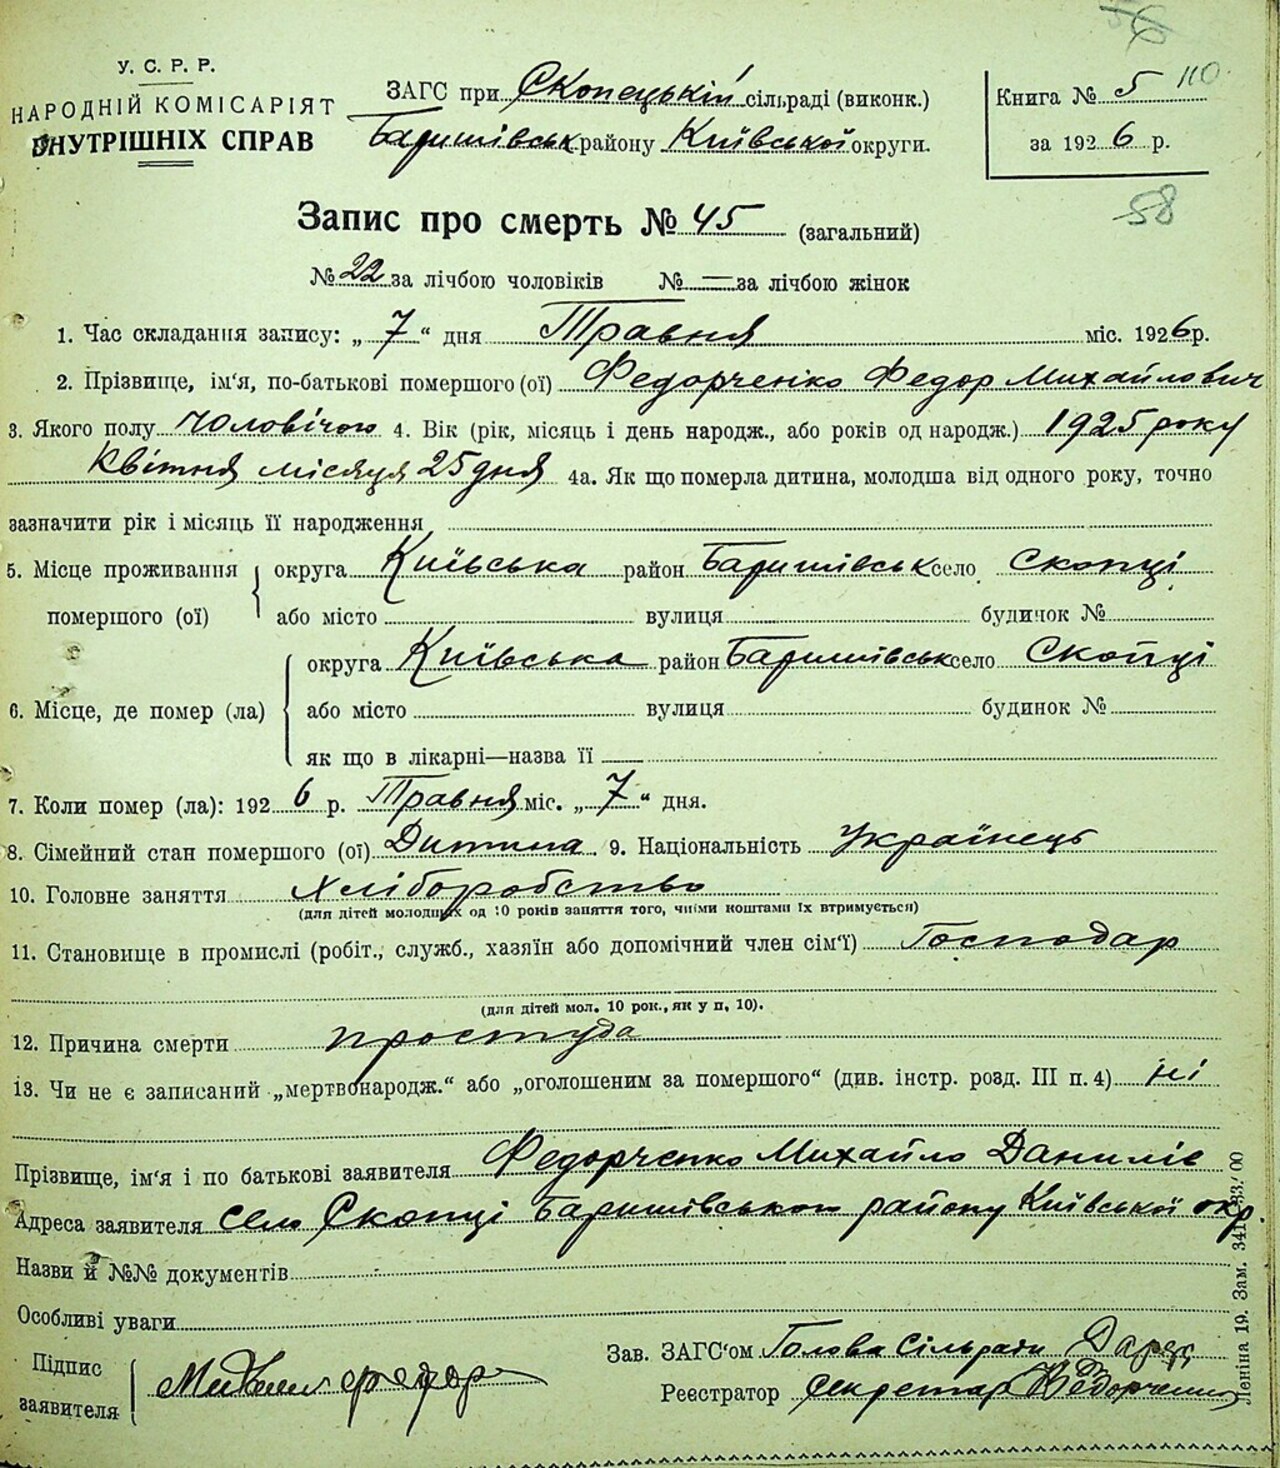 У. С. Р. Р.
НАРОДНІЙ КОМІСАРІЯТ
ВНУТРІШНІХ СПРАВ
ЗАГС при Скопецькій сільраді (виконк.)
Баришівськ району Київської округи.
Книга № 5 110
за 1926 р.
58
Запис про смерть № 45 (загальний)
№ 22 за лічбою чоловіків № — за лічбою жінок
1. Час складання запису: „7“ дня Травня міс. 1926 р.
2. Прізвище, ім'я, по-батькові помершого (ої) Федорченко Федор Михайлович
3. Якого полу чоловічого 4. Вік (рік, місяць і день народж., або років од народж.) 1925 року
Квітня місяця 25 дня 4а. Як що померла дитина, молодша від одного року, точно
зазначити рік і місяць її народження
5. Місце проживання помершого (ої) округа Київська район Баришівськ село Скопці
або місто вулиця будинок №
6. Місце, де помер (ла) округа Київська район Баришівськ село Скопці
або місто вулиця будинок №
як що в лікарні—назва її —
7. Коли помер (ла): 1926 р. Травня міс. „7“ дня.
8. Сімейний стан помершого (ої) Дитина 9. Національність Українець
10. Головне заняття Хліборобство
(для дітей молодших од 10 років заняття того, чиїми коштами їх втримується)
11. Становище в промислі (робіт., служб., хазяїн або допомічний член сім'ї) Господар
(для дітей мол. 10 рок., як у п. 10).
12. Причина смерти простуда
13. Чи не є записаний „мертвонародж.“ або „оголошеним за помершого“ (див. інстр. розд. III п. 4) ні
Прізвище, ім'я і по батькові заявителя Федорченко Михайло Данилів
Адреса заявителя село Скопці Баришівського району Київської окр.
Назви й №№ документів
Особливі уваги
Підпис заявителя
Зав. ЗАГС'ом Голова Сільради
Реєстратор секретар Федорченко
Леніна 19. Зам.